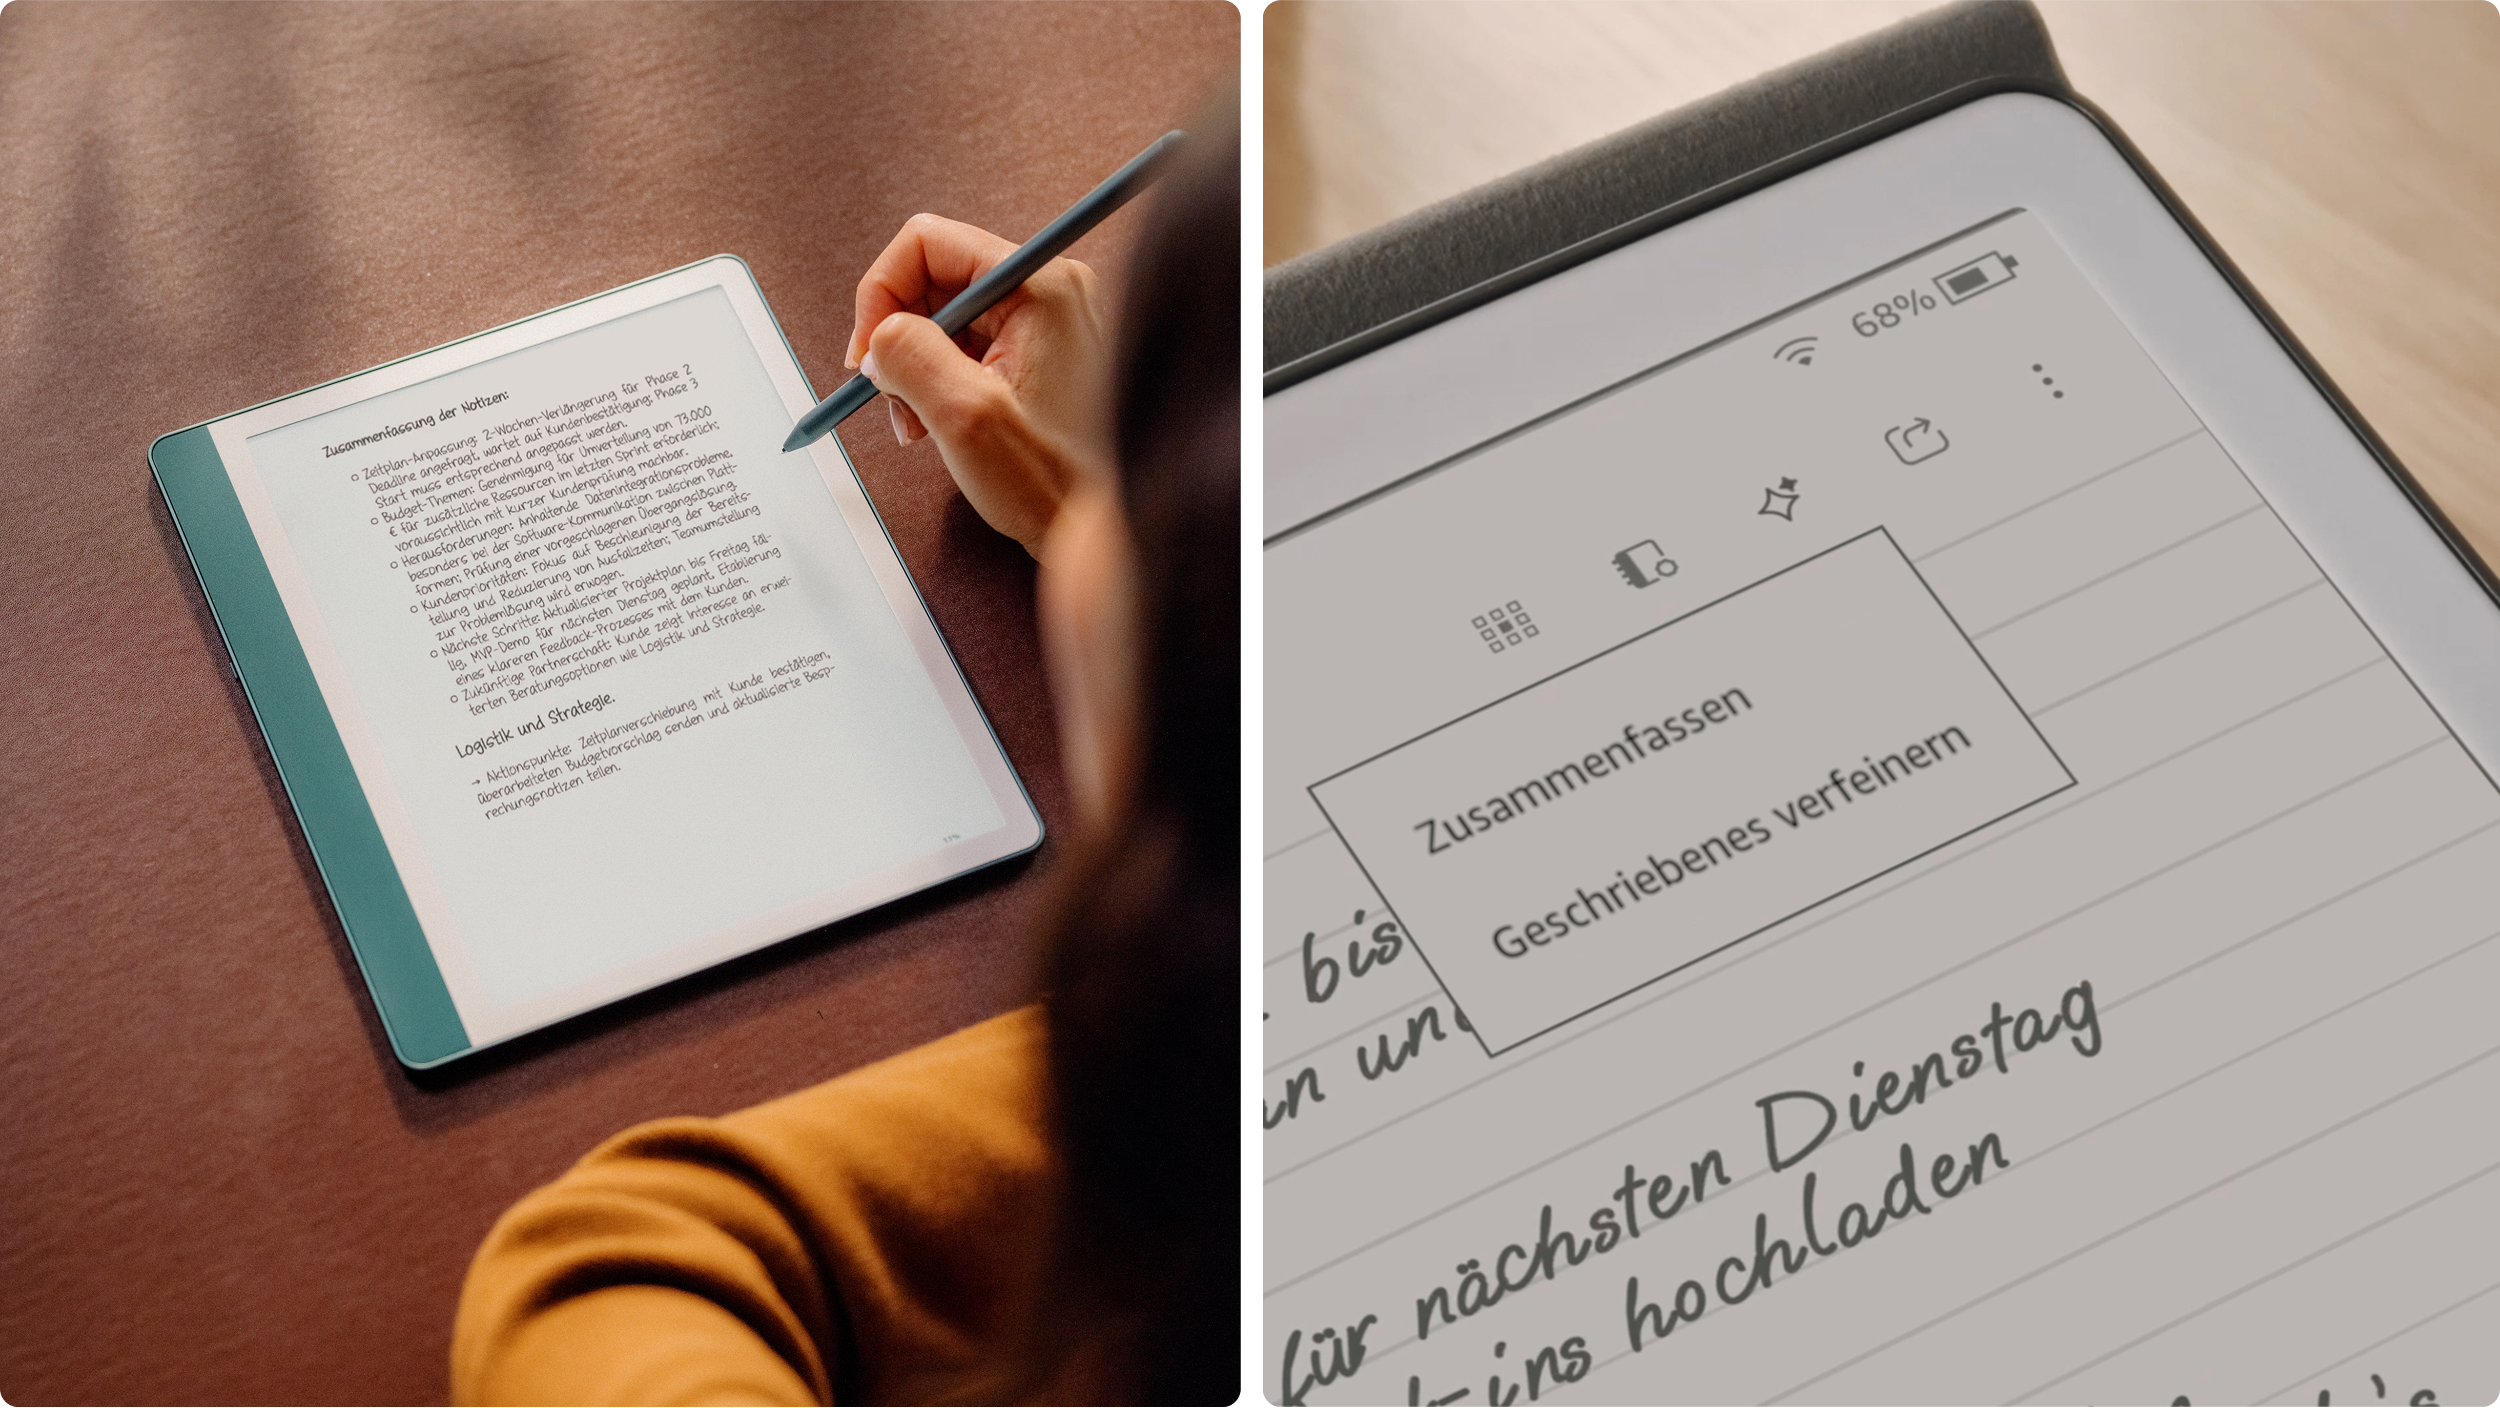 Zusammenfassung der Notizen:
○ Zeitplan-Anpassung: 2-Wochen-Verlängerung für Phase 2
Deadline angefragt, wartet auf Kundenbestätigung; Phase 3
Start muss entsprechend angepasst werden.
○ Budget-Themen: Genehmigung für Umverteilung von 73.000
€ für zusätzliche Ressourcen im letzten Sprint erforderlich;
voraussichtlich mit kurzer Kundenprüfung machbar.
○ Herausforderungen: Anhaltende Datenintegrationsprobleme,
besonders bei der Software-Kommunikation zwischen Platt-
formen; Prüfung einer vorgeschlagenen Übergangslösung.
○ Kundenprioritäten: Fokus auf Beschleunigung der Bereits-
tellung und Reduzierung von Ausfallzeiten; Teamumstellung
zur Problemlösung wird erwogen.
○ Nächste Schritte: Aktualisierter Projektplan bis Freitag fäl-
lig, MVP-Demo für nächsten Dienstag geplant, Etablierung
eines klareren Feedback-Prozesses mit dem Kunden.
○ Zukünftige Partnerschaft: Kunde zeigt Interesse an erwei-
terten Beratungsoptionen wie Logistik und Strategie.
Logistik und Strategie.
→ Aktionspunkte: Zeitplanverschiebung mit Kunde bestätigen,
überarbeiteten Budgetvorschlag senden und aktualisierte Besp-
rechungsnotizen teilen.
68%
Zusammenfassen
Geschriebenes verfeinern
bis
für nächsten Dienstag
-ins hochladen